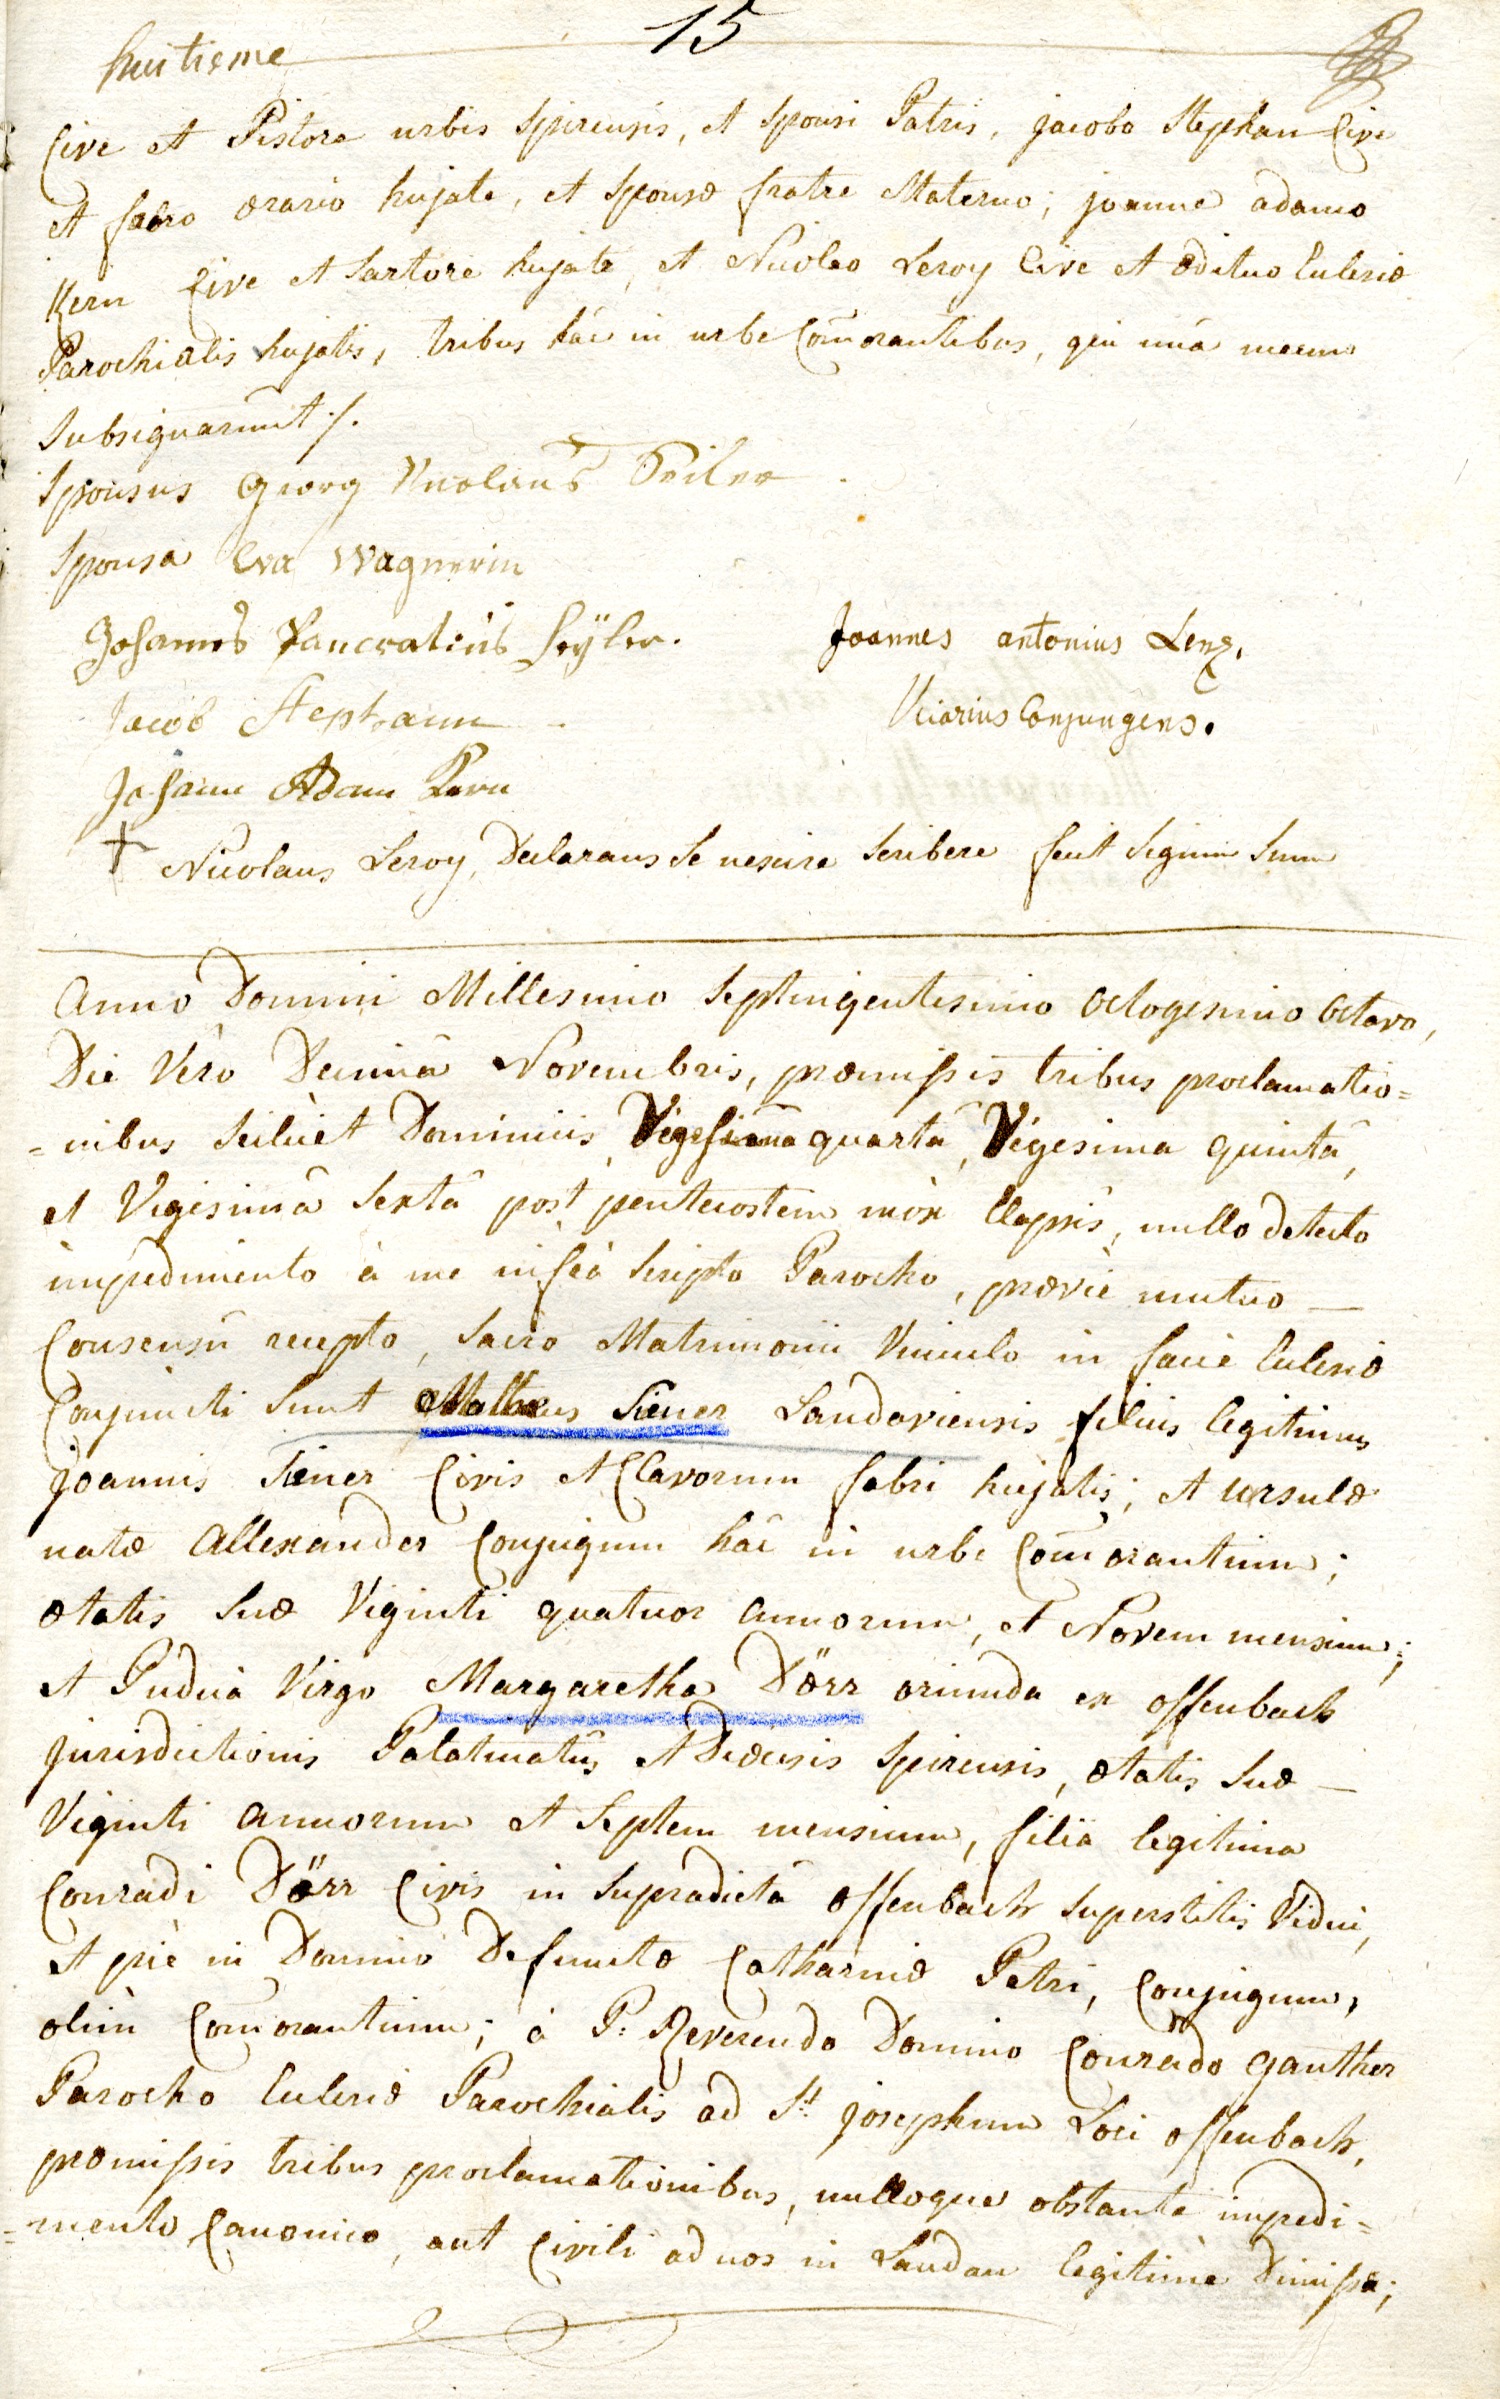 15
huitieme
Cive et Pistore urbis Spirensis, et Sponsi Patris, jacobo Stephan Cive
et fabro ærario hujate, et Sponsæ fratre Materno; joanne adamo
Kern Cive et Sartore hujate, et Nicolao Leroy Cive et ædituo Ecclesiæ
Parochialis hujatis, tribus hâc in urbe Com̃orantibus, qui unà mecum
Subsignarunt ·/.
Sponsus Georg Nicolaus Seiler
Sponsa Eva Wagnerin
Johannes Pancratius Seÿler.
Joannes antonius Lenz,
Jacob Stephann
Viciarius Conjungens.
Johann Adam Kern
+ Nicolaus Leroy, Declarans Se nescire Scribere fecit Signum Suum
Anno Domini Millesimo Septingentesimo Octogesimo Octavo,
Die Verò Decimâ Novembris, præmissis tribus proclamatio=
=nibus Scilicèt Dominicis Vigesimâ quartâ, Vigesima quintâ,
et Vigesimâ Sextâ post pentecosten mòx Elapsis, nullo detecto
impedimento à me infrà Scripto Parocho, præviè mutuo —
Consensû recepto, Sacro Matrimonii Vinculo in facie Ecclesiæ
Conjuncti Sunt Mathæus Siener Landaviensis filius legitimus
Joannis Siener Civis et Clavorum fabri hujatis; et ursulæ
natæ Allexander Conjugum hâc in urbe Com̃orantium;
ætatis Suæ Viginti quatuor annorum, et Novem mensium;
et Pudica Virgo Margaretha Dörr oriunda ex offenbach
jurisdictionis Palatinatûs et Diœcesis Spirensis, ætatis Suæ —
Viginti annorum et Septem mensium, filia legitima
Conradi Dörr Civis in Supradictâ offenbach Superstitis Vidui,
et piè in Domino Defunctæ Catharinæ Petri, Conjugum,
olim Com̃orantium; à P: Reverendo Domino Conrado ganther
Parocho Ecclesiæ Parochialis ad St: josephum Loci offenbach,
præmissis tribus proclamationibus, nulloque obstante impedi=
=mento Canonico, aut Civili ad nos in Landau legitimè Dimissa;